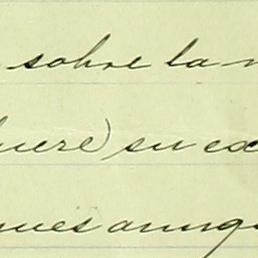 sobre la
uere) su ex
ues aunq